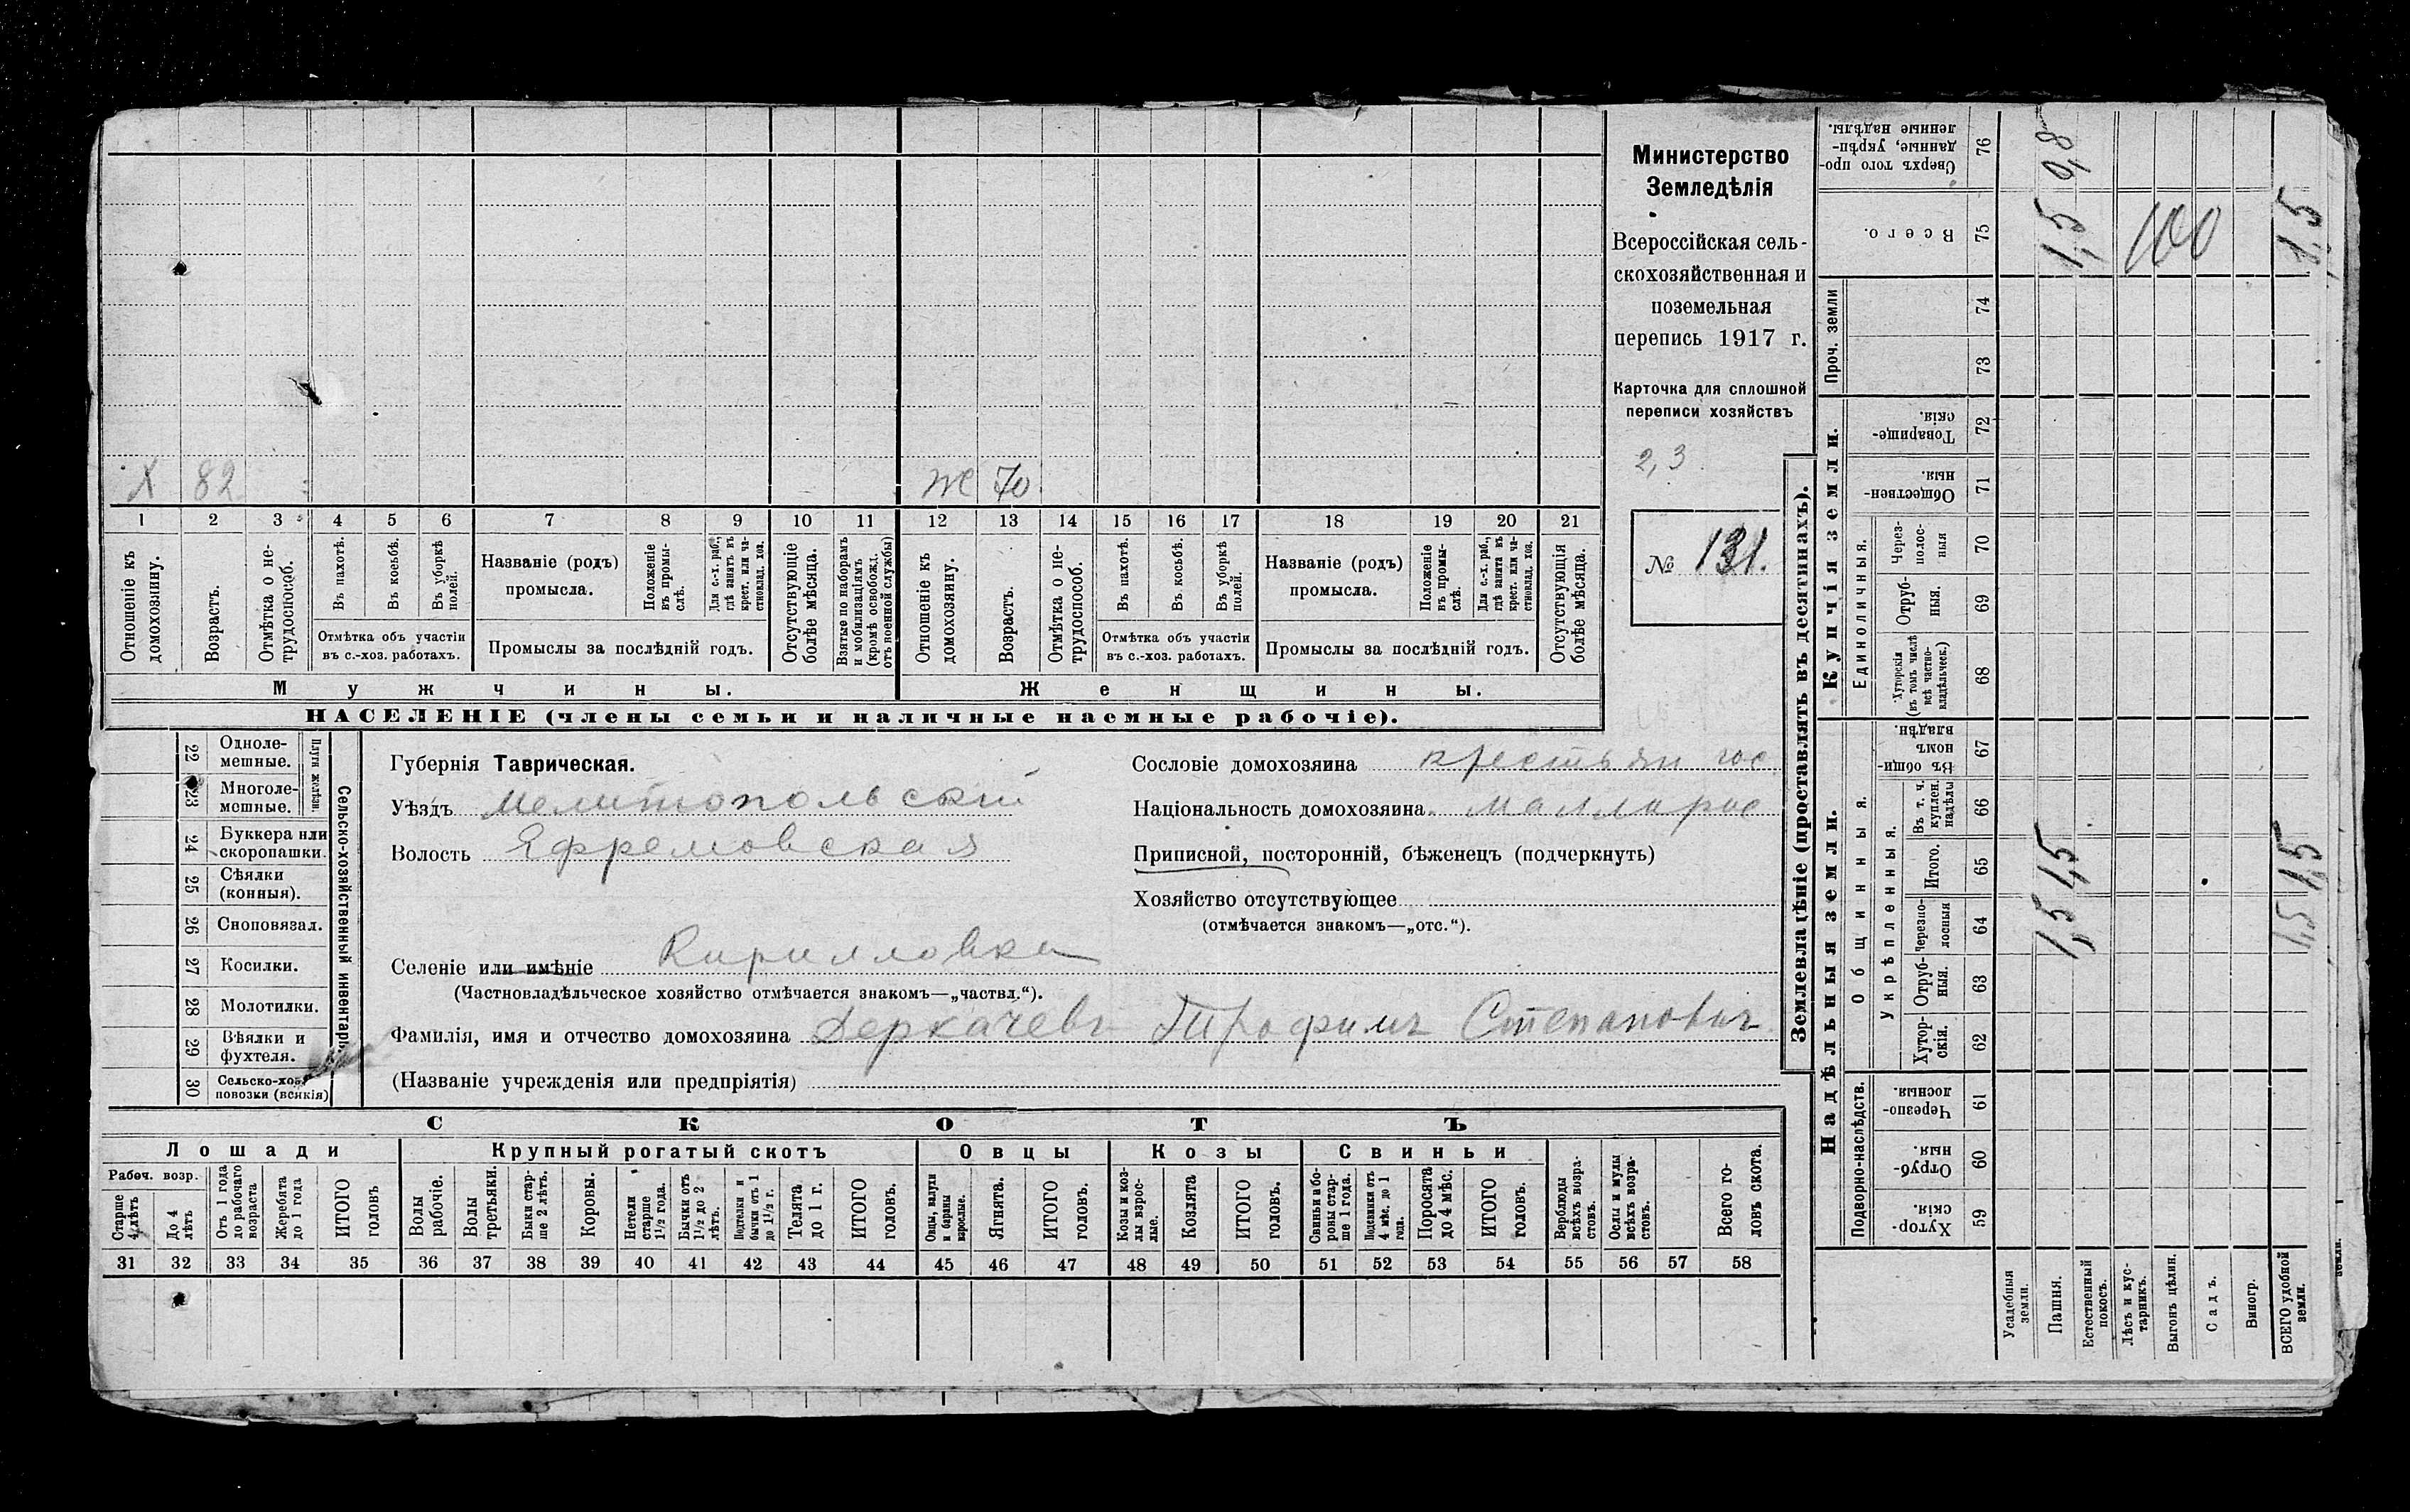 Министерство
Земледѣлія
Всероссійская сель-
скохозяйственная и
поземельная
перепись 1917 г.
Карточка для сплошной
переписи хозяйствъ
2,3
№ 131.
Х 82
Ж 70
1 2 3 4 5 6 7 8 9 10 11 12 13 14 15 16 17 18 19 20 21
Отношеніе къ
домохозяину.
Возрастъ.
Отмѣтка о не-
трудоспособ.
Въ пахотѣ.
Въ косьбѣ.
Въ уборкѣ
полей.
Отмѣтка объ участіи
въ с.-хоз. работахъ.
Названіе (родъ)
промысла.
Положеніе
въ промы-
слѣ.
Для с.-х. раб.,
гдѣ занятъ въ
крест. или ча-
стновлад. хоз.
Промыслы за послѣдній годъ.
Отсутствующіе
болѣе мѣсяца.
Взятые по наборамъ
и мобилизаціямъ
(кромѣ освобожд.
отъ военной службы)
Отношеніе къ
домохозяину.
Возрастъ.
Отмѣтка о не-
трудоспособ.
Въ пахотѣ.
Въ косьбѣ.
Въ уборкѣ
полей.
Отмѣтка объ участіи
въ с.-хоз. работахъ.
Названіе (родъ)
промысла.
Положеніе
въ промы-
слѣ.
Для с.-х. раб.,
гдѣ занята въ
крест. или ча-
стновлад. хоз.
Промыслы за послѣдній годъ.
Отсутствующія
болѣе мѣсяца.
Мужчины.
Женщины.
НАСЕЛЕНІЕ (члены семьи и наличные наемные рабочіе).
Сельско-хозяйственный инвентарь
Плуги желѣзн.
22 Одноле-
мешные.
23 Многоле-
мешные.
24 Буккера или
скоропашки.
25 Сѣялки
(конныя).
26 Сноповязал.
27 Косилки.
28 Молотилки.
29 Вѣялки и
фухтеля.
30 Сельско-хоз.
повозки (всякія)
Губернія Таврическая.
Уѣздъ Мелитопольскій
Волость Ефремовская
Сословіе домохозяина крестьян гос
Національность домохозяина. маллорос
Приписной, посторонній, бѣженецъ (подчеркнуть)
Хозяйство отсутствующее
(отмѣчается знакомъ—„отс.“).
Селеніе или имѣніе Кирилловка
(Частновладѣльческое хозяйство отмѣчается знакомъ—„частвл.“).
Фамилія, имя и отчество домохозяина Деркачевъ Трофимъ Степановичъ
(Названіе учрежденія или предпріятія)
СКОТЪ
Лошади
Крупный рогатый скотъ
Овцы
Козы
Свиньи
Рабоч. возр.
Старше
4 лѣтъ
До 4
лѣтъ
Отъ 1 года
до рабочаго
возраста
Жеребята
до 1 года
ИТОГО
головъ
Волы
рабочіе.
Волы
третьяки.
Быки стар-
ше 2 лѣтъ.
Коровы.
Нетели
старше
1½ года.
Бычки отъ
1½ до 2
лѣтъ.
Подтелки и
бычки отъ 1
до 1½ г.
Телята
до 1 г.
ИТОГО
головъ.
Овцы, валухи
и бараны
взрослые.
Ягнята.
ИТОГО
головъ.
Козы и коз-
лы взрос-
лые.
Козлята
ИТОГО
головъ.
Свиньи и бо-
ровы стар-
ше 1 года.
Подсвинки отъ
4 мѣс. до 1
года.
Поросята
до 4 мѣс.
ИТОГО
головъ.
Верблюды
всѣхъ возра-
стовъ.
Ослы и мулы
всѣхъ возра-
стовъ.
Всего го-
ловъ скота.
31 32 33 34 35 36 37 38 39 40 41 42 43 44 45 46 47 48 49 50 51 52 53 54 55 56 57 58
Землевладѣніе (проставлять въ десятинахъ).
Надѣльныя земли.
Купчія земли.
Проч. земли
Подворно-наслѣдств.
Общинныя.
Укрѣпленныя.
Единоличныя.
Хутор-
скія. 59
Отруб-
ныя. 60
Черезпо-
лосныя. 61
Хутор-
скія. 62
Отруб-
ныя. 63
Черезпо-
лосныя 64
Итого. 65
Въ т. ч.
куплен.
надѣлы 66
Въ общин-
номъ
владѣн. 67
Хуторскія
(въ томъ числѣ
всѣ частно-
владѣльческ.) 68
Отруб-
ныя. 69
Через-
полос-
ныя 70
Обществен-
ныя. 71
Товарище-
скія. 72
73
74
Всего. 75
Сверхъ того про-
данные, укрѣп-
ленные надѣлы. 76
Усадебныя
земли.
Пашня. 1,5 1,5 1,5 9,8
Естественный
покосъ.
Лѣсъ и кус-
тарникъ. 100
Выгонъ цѣлин.
Садъ.
Виногр.
ВСЕГО удобной
земли. 1,5 1,5 1,5
земли.